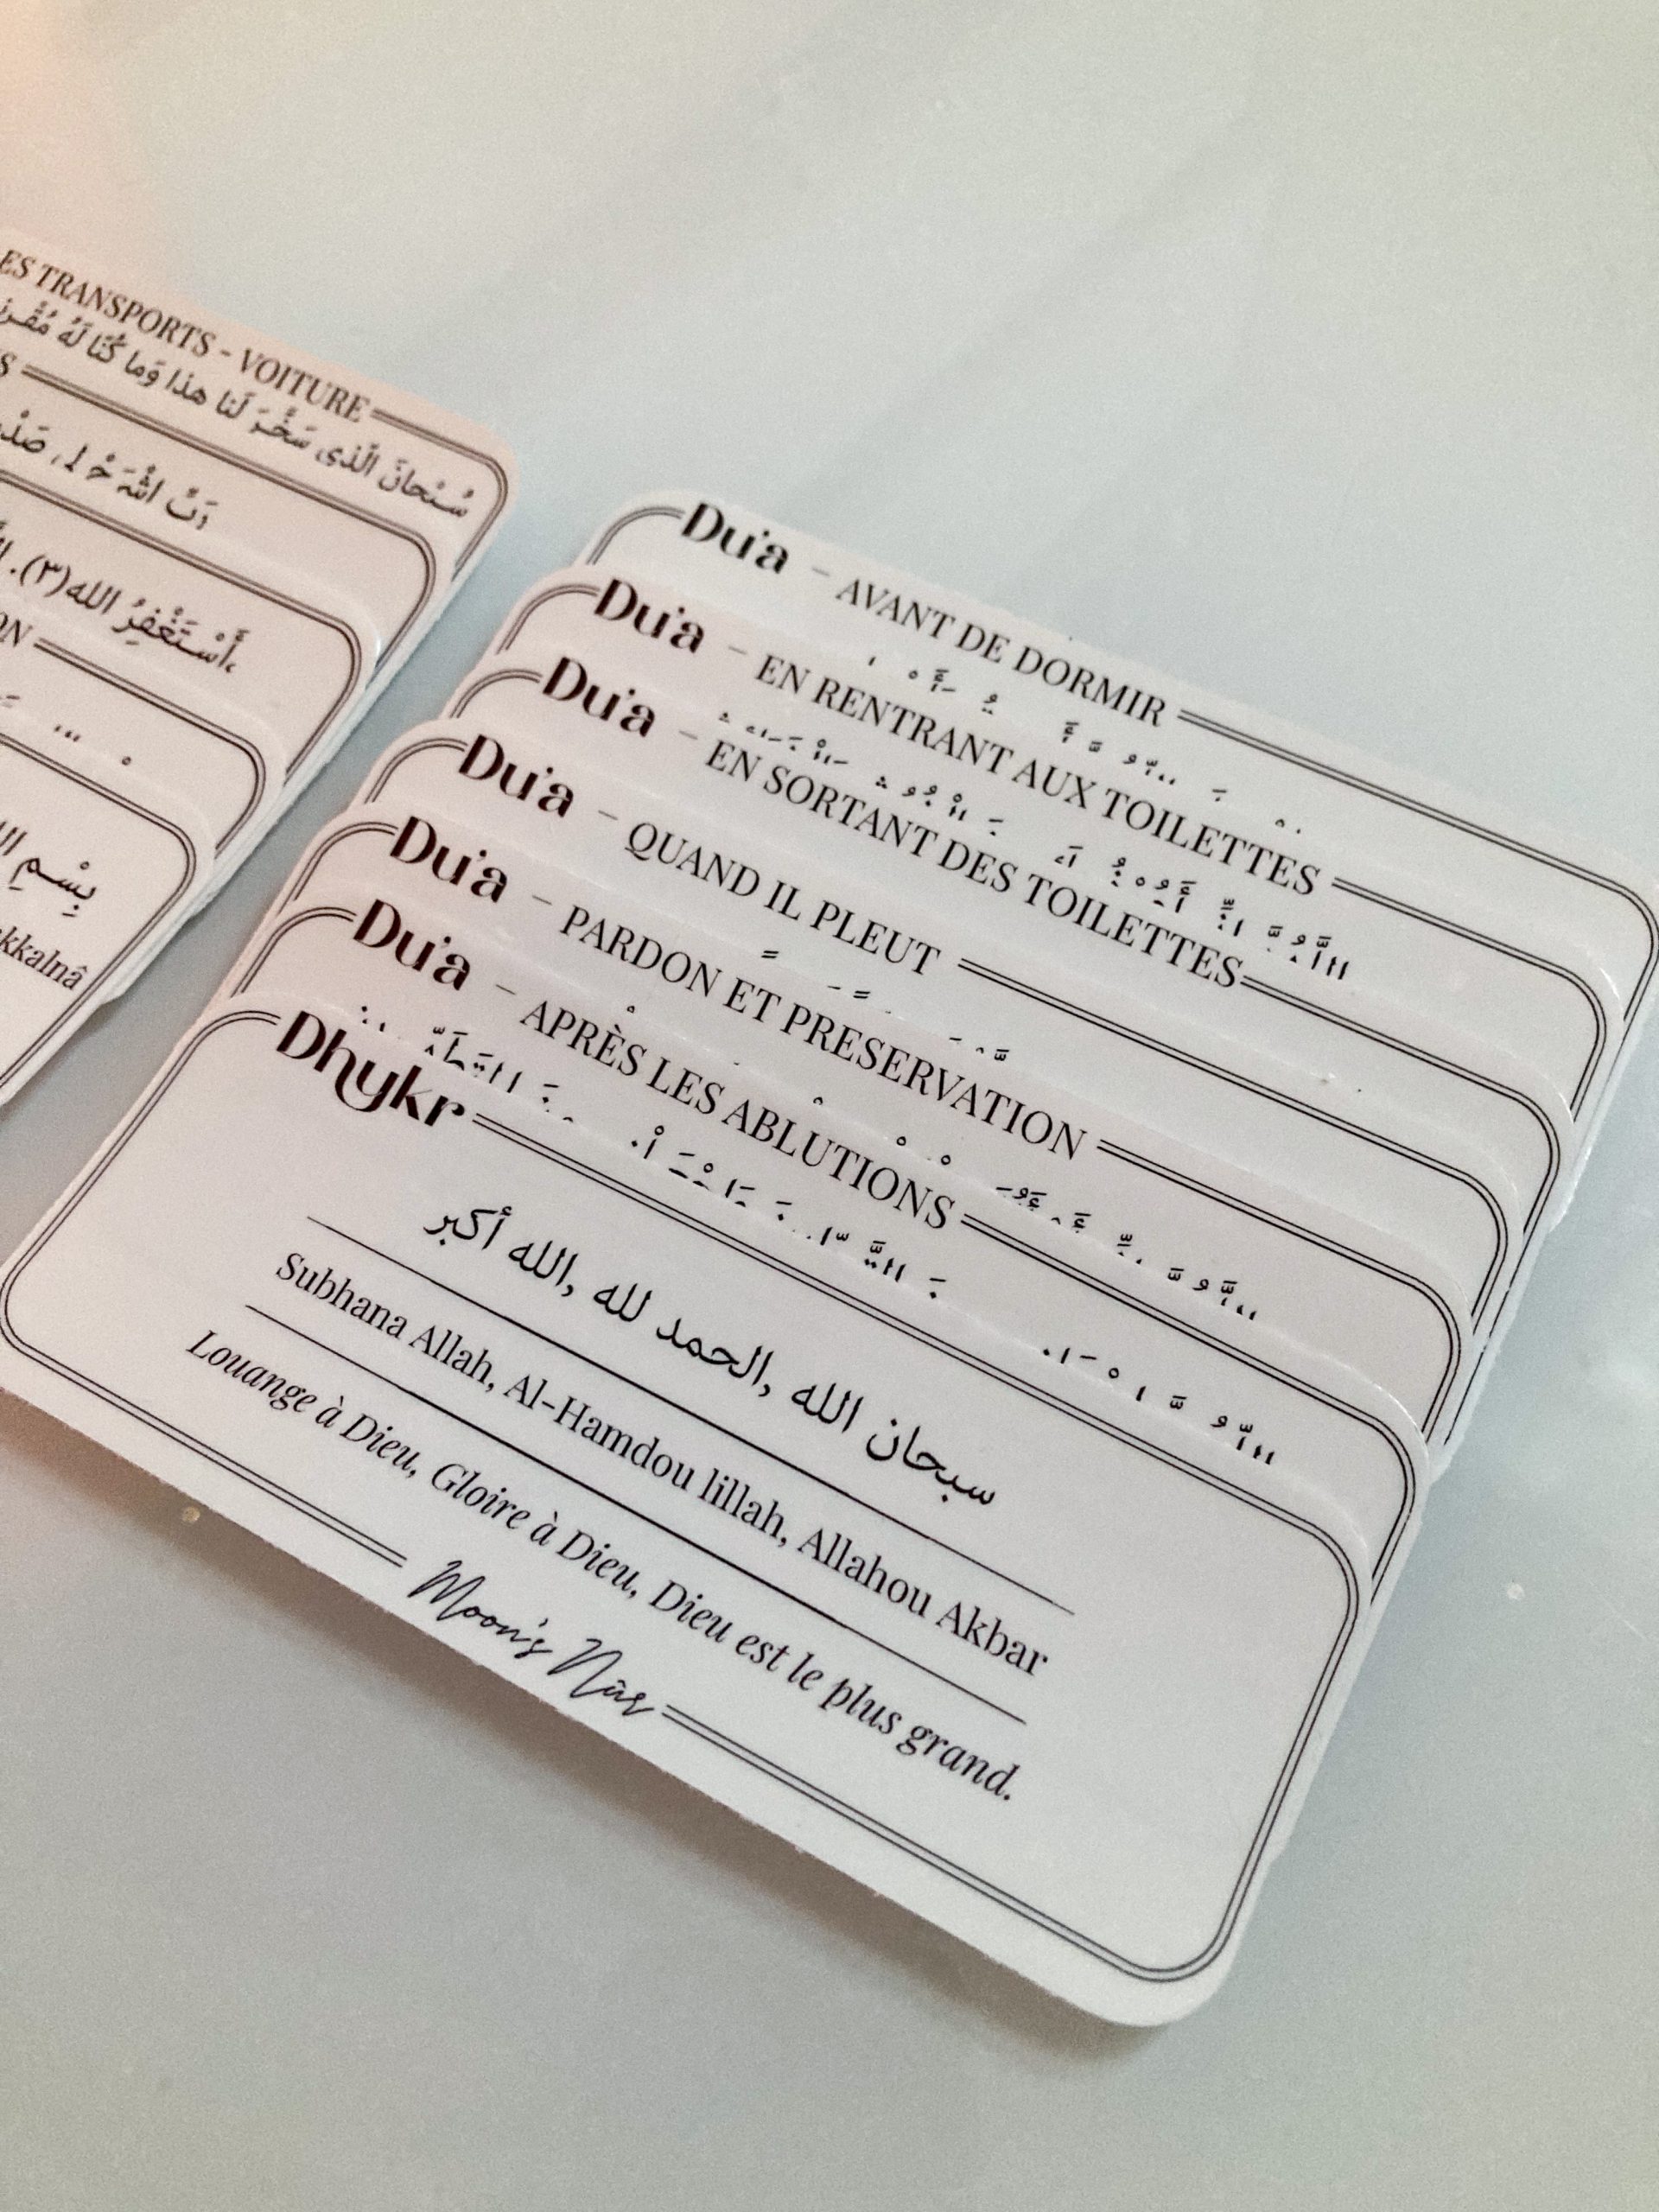 ES TRANSPORTS - VOITURE
سُبْحانَ الَّذِي سَخَّرَ لَنا هذا وَما كُنّا لَهُ
S
أَسْتَغْفِرُ الله(٣).
ON
بِسْمِ
kkalnâ
Du'a - AVANT DE DORMIR
Du'a - EN RENTRANT AUX TOILETTES
Du'a - EN SORTANT DES TOILETTES
Du'a - QUAND IL PLEUT
Du'a - PARDON ET PRESERVATION
Du'a - APRÈS LES ABLUTIONS
Dhykr
سبحان الله ,الحمد لله ,الله أكبر
Subhana Allah, Al-Hamdou lillah, Allahou Akbar
Louange à Dieu, Gloire à Dieu, Dieu est le plus grand.
Moon's Nūr